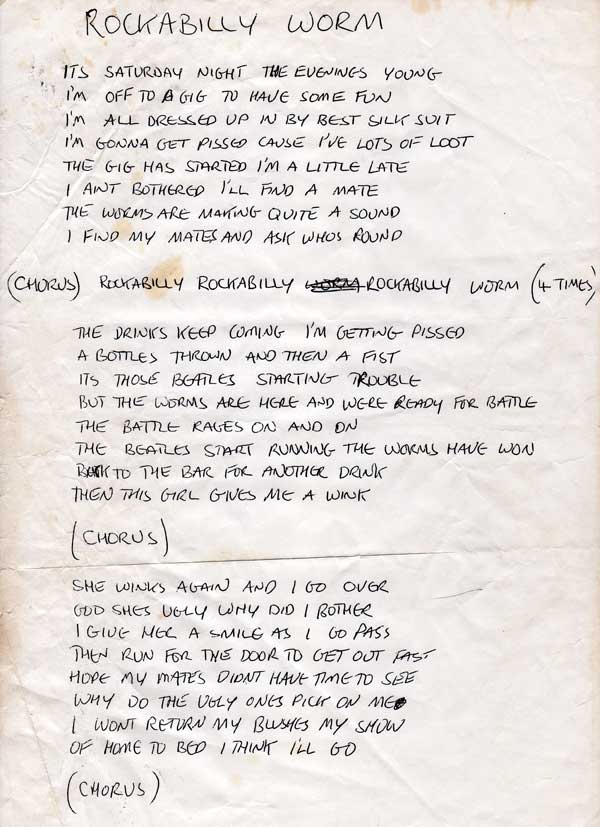 ROCKABILLY WORM
ITS SATURDAY NIGHT THE EVENINGS YOUNG
I'M OFF TO A GIG TO HAVE SOME FUN
I'M ALL DRESSED UP IN BY BEST SILK SUIT
I'M GONNA GET PISSED CAUSE I'VE LOTS OF LOOT
THE GIG HAS STARTED I'M A LITTLE LATE
I AINT BOTHERED I'LL FIND A MATE
THE WORMS ARE MAKING QUITE A SOUND
I FIND MY MATES AND ASK WHOS ROUND
(CHORUS) ROCKABILLY ROCKABILLY ROCKABILLY WORM (4 TIMES)
THE DRINKS KEEP COMING I'M GETTING PISSED
A BOTTLES THROWN AND THEN A FIST
ITS THOSE BEATLES STARTING TROUBLE
BUT THE WORMS ARE HERE AND WERE READY FOR BATTLE
THE BATTLE RAGES ON AND ON
THE BEATLES START RUNNING THE WORMS HAVE WON
BACK TO THE BAR FOR ANOTHER DRINK
THEN THIS GIRL GIVES ME A WINK
(CHORUS)
SHE WINKS AGAIN AND I GO OVER
GOD SHES UGLY WHY DID I BOTHER
I GIVE HER A SMILE AS I GO PASS
THEN RUN FOR THE DOOR TO GET OUT FAST
HOPE MY MATES DIDNT HAVE TIME TO SEE
WHY DO THE UGLY ONES PICK ON ME
I WONT RETURN MY BLUSHES MY SHOW
OF HOME TO BED I THINK I'LL GO
(CHORUS)